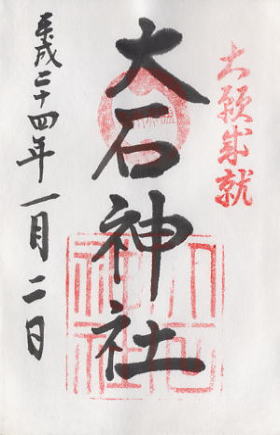 大願成就
大石神社
平成二十四年一月二日